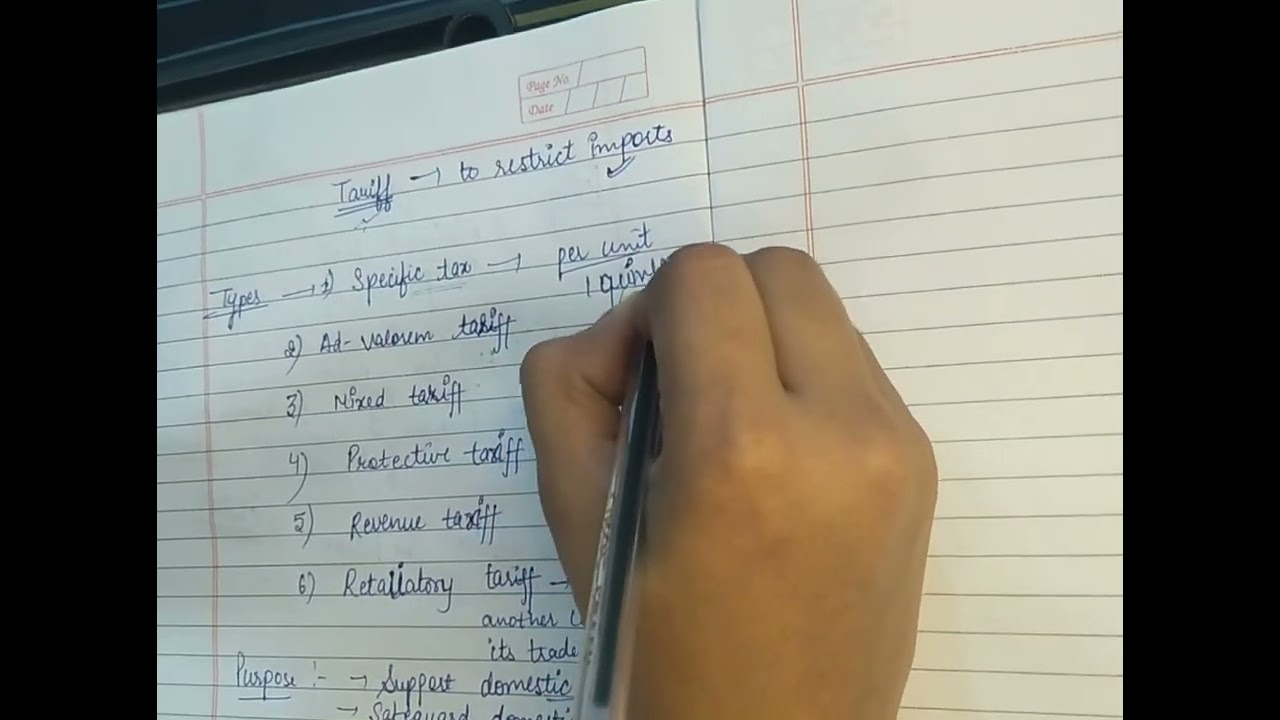 Page No.
Date
Tariff → to restrict imports
Types → 1) Specific tax → per unit
1
2) Ad-valorem tariff
3) Mixed tariff
4) Protective tariff
5) Revenue tariff
6) Retaliatory tariff →
another
its trade
Purpose :- → Support domestic
→ Safeguard